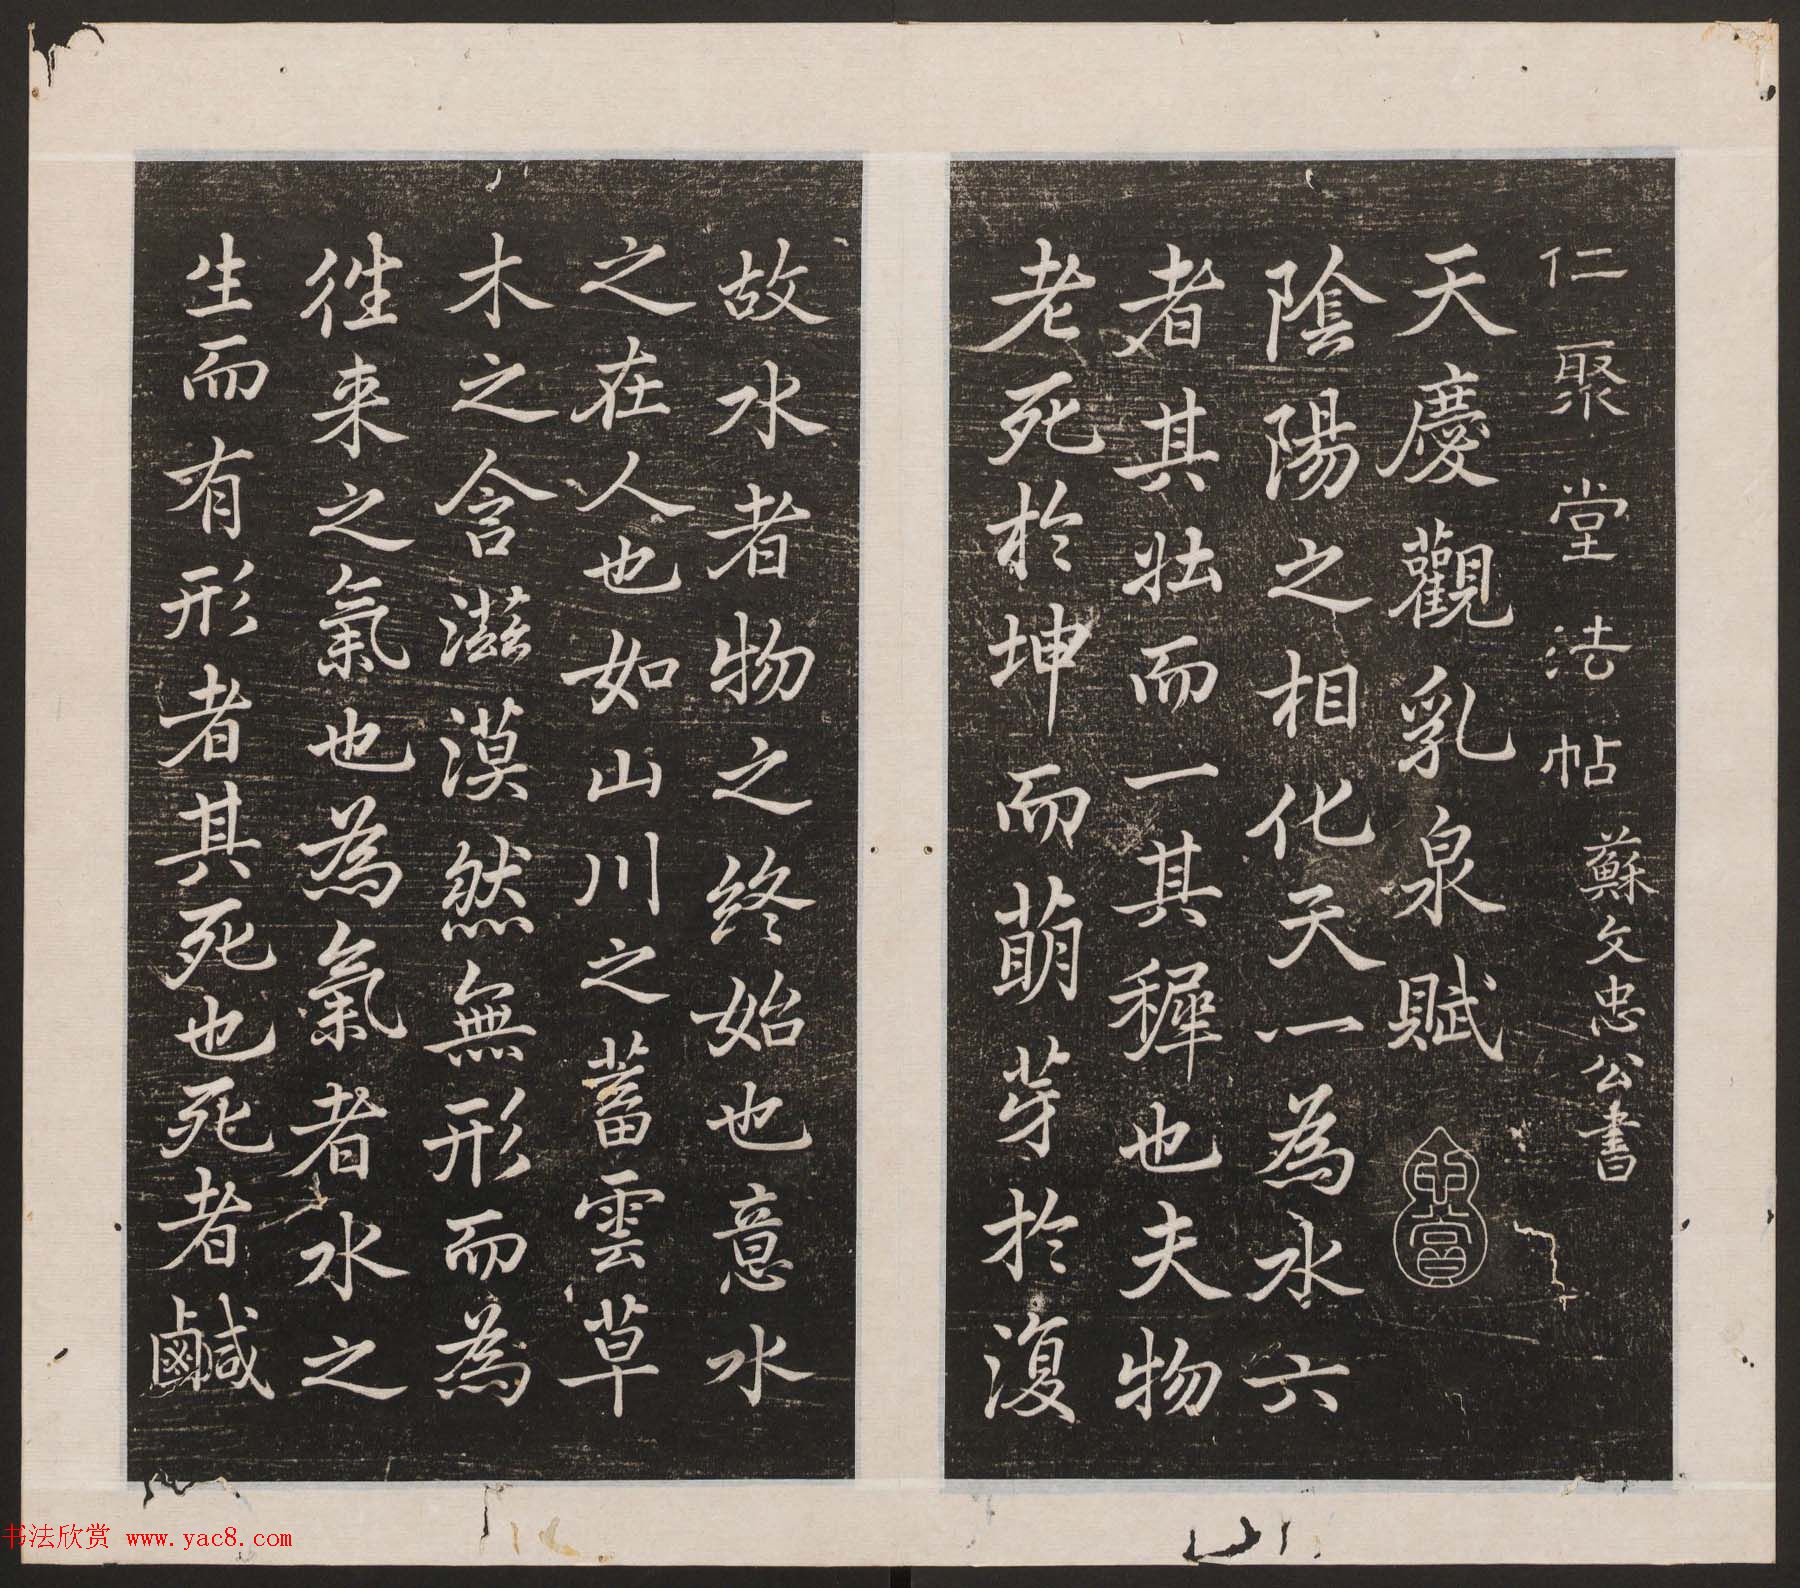 仁聚堂法帖 蘇文忠公書
天慶觀乳泉賦
陰陽之相化天一為水六
者其壯而一其穉也夫物
老死於坤而萌芽於復
故水者物之終始也意水
之在人也如山川之蓄雲草
木之含滋漠然無形而為
徃来之氣也為氣者水之
生而有形者其死也死者鹹
书法欣赏 www.yac8.com